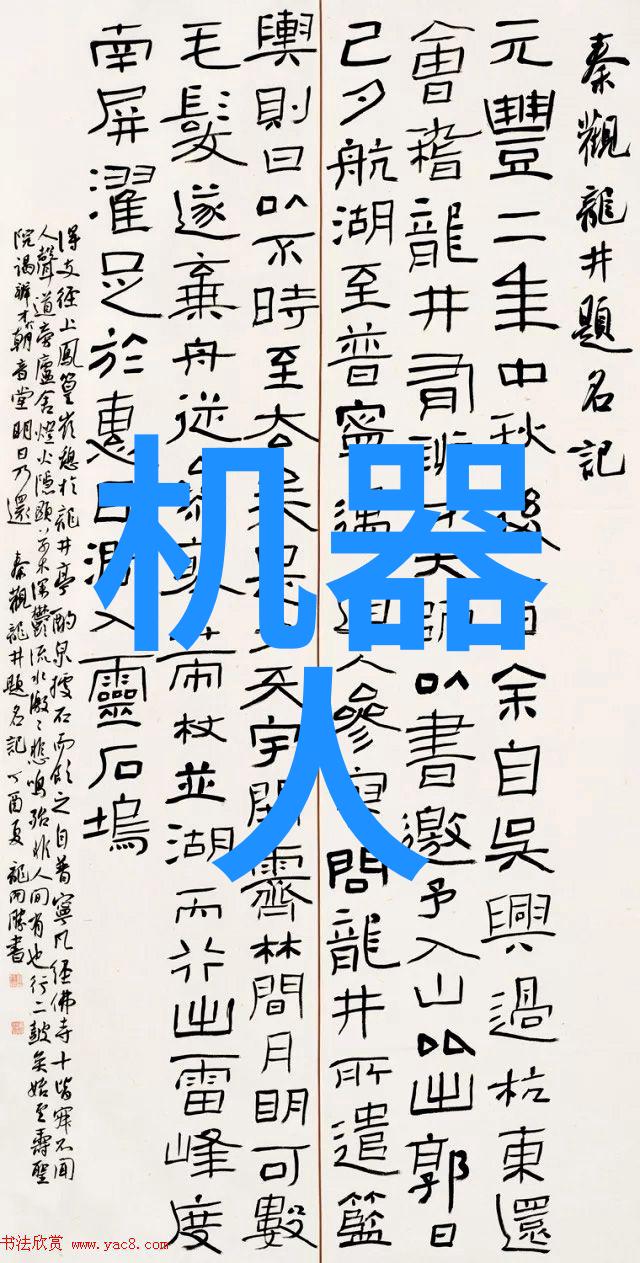 秦觀龍井題名記
元豐二年中秋後日余自吳興過杭東還
會稽龍井有辨才大師以書邀予入山比出郭日
已夕航湖至普寧遇道人參寥問龍井所遣籃
輿則曰以不時至去矣是夕天宇開霽林間月明可數
毛髮遂棄舟從參寥策杖並湖而行出雷峰度
南屏濯足於惠因澗入靈石塢
得支徑上鳳篁嶺憩於龍井亭酌泉據石而飲之自普寧凡經佛寺十皆寂不聞
人聲道旁廬舍燈火隱顯草木深鬱流水激激悲鳴殆非人間有也行二鼓矣始至壽聖
院謁辨才朝音堂明日乃還 秦觀龍井題名記 丁酉夏 龍丙勝書
机器
人
书法欣赏 www.yac8.com